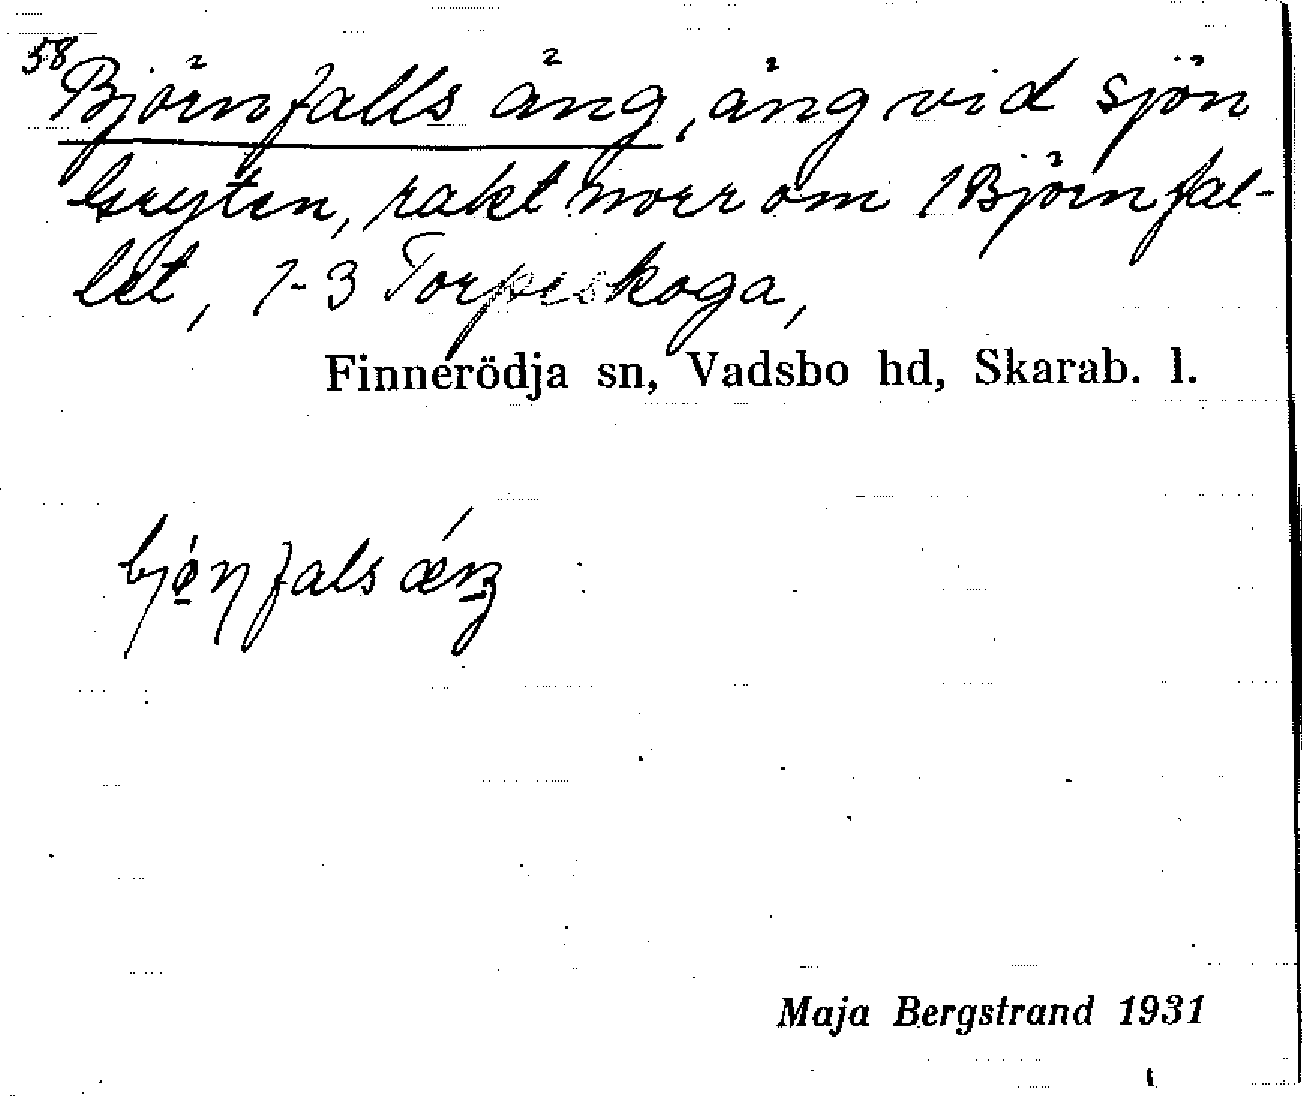 58
Björnfalls äng, äng vid sjön
Gryten, rakt norr om 1 Björnfal-
let, 1-3 Torpeskoga,
Finnerödja sn, Vadsbo hd, Skarab. l.
Maja Bergstrand 1931